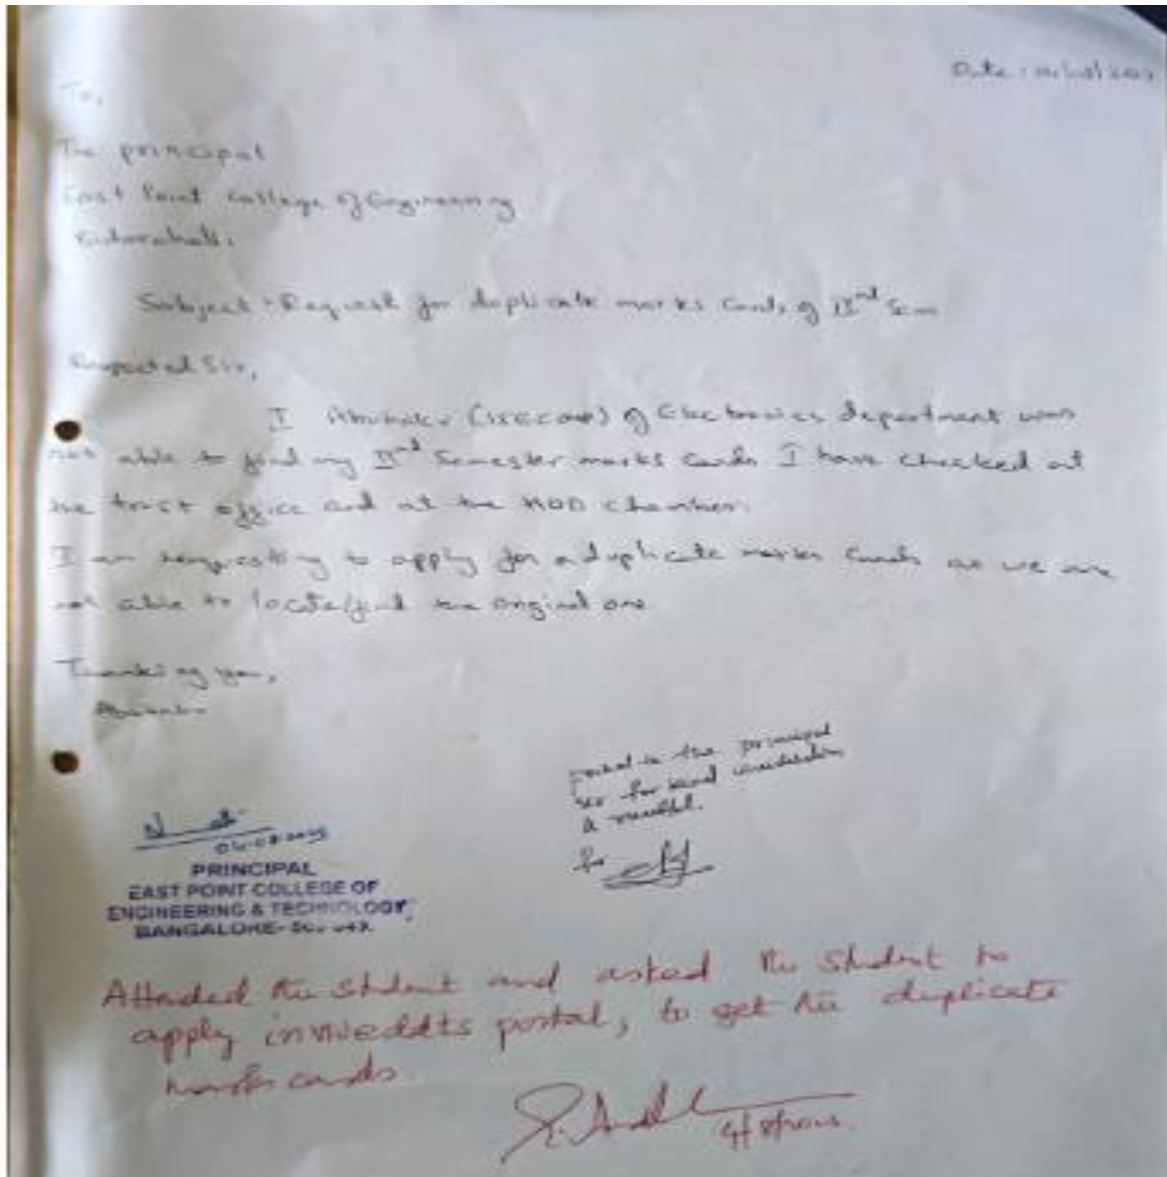 Date:
To,
The principal
East Point College of Engineering
Subject: Request for duplicate marks cards of IInd Sem
Respected Sir,
I of Electronics department was
not able to find my IInd Semester marks cards I have checked at
the trust office and at the HOD chamber.
I am requesting to apply for a duplicate marks cards as we are
not able to locate/find the original one
Thanking you,
to the principal
sir for kind
for
PRINCIPAL
EAST POINT COLLEGE OF
ENGINEERING & TECHNOLOGY,
BANGALORE-
Attended the student and asked the student to
apply in portal, to get the duplicate
marks cards